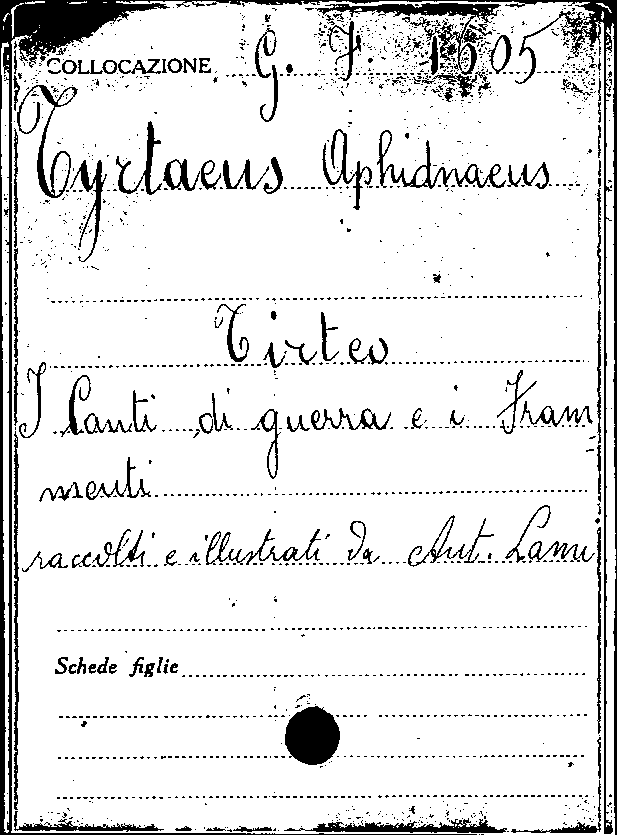 COLLOCAZIONE G. F. 1605
Tyrtaeus Aphidnaeus
Tirteo
I Canti di guerra e i Fram=
menti
raccolti e illustrati da Ant. Lami
Schede figlie